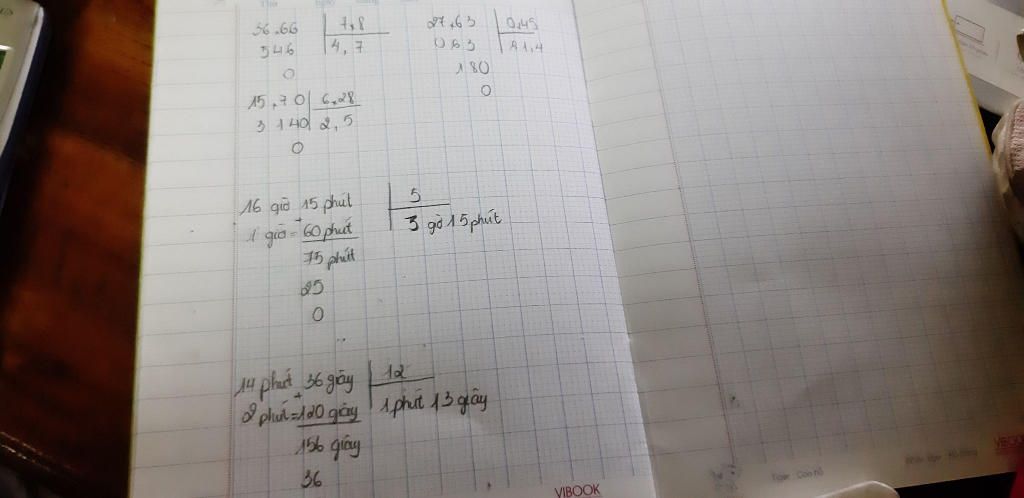 36,66 7,8
546 4,7
0
27,63 0,45
063 61,4
180
0
15,70 6,28
3 140 2,5
0
16 giờ 15 phút 5
+
1 giờ = 60 phút 3 gờ 15 phút
75 phút
25
0
14 phút 36 giây 12
+
2 phút = 120 giây 1 phút 13 giây
156 giây
36
VIBOOK